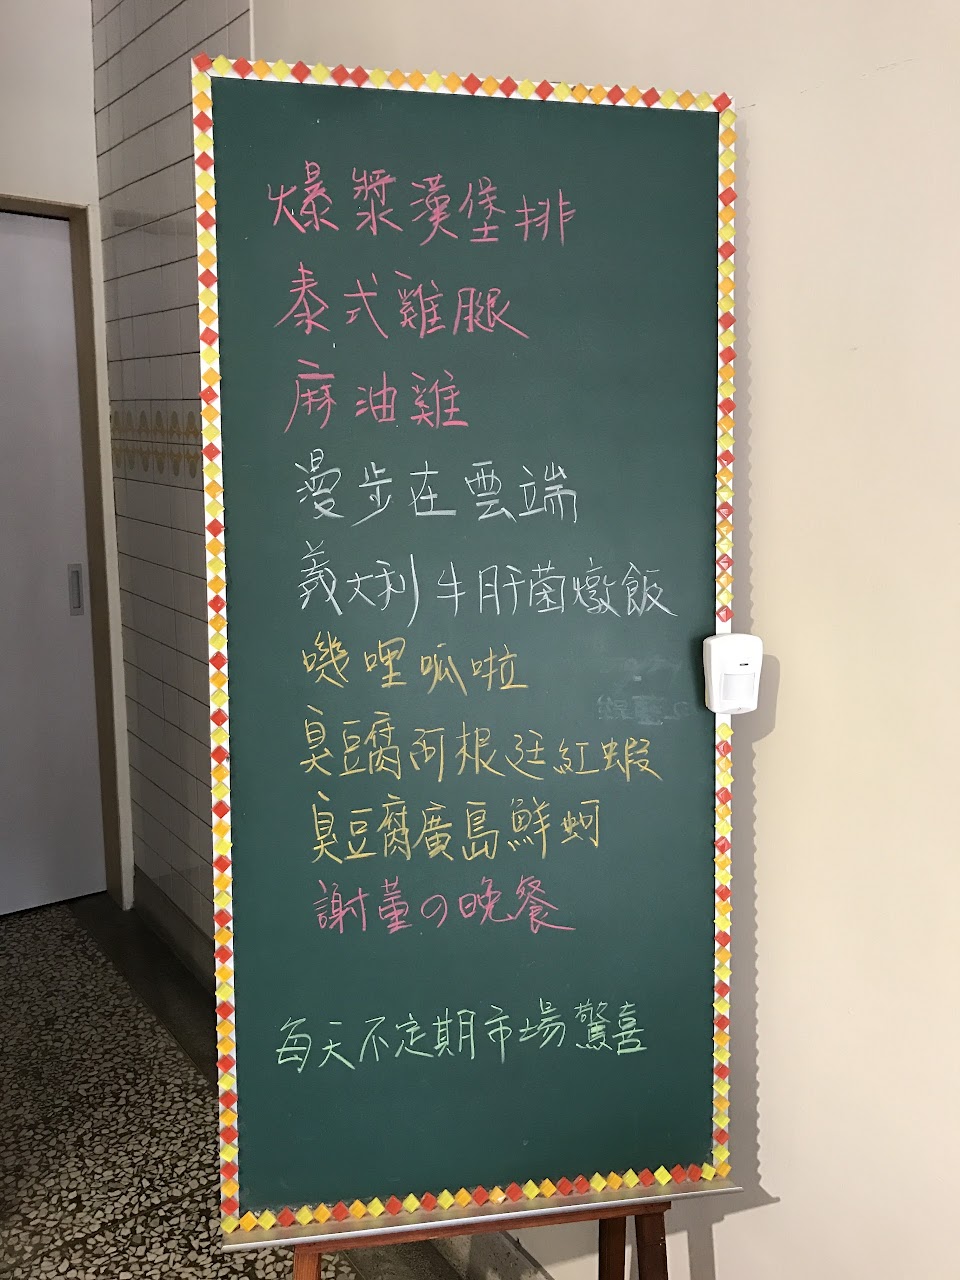 爆漿漢堡排
泰式雞腿
麻油雞
漫步在雲端
義大利牛肝菌燉飯
嘰哩呱啦
臭豆腐阿根廷紅蝦
臭豆腐廣島鮮蚵
謝董の晚餐
每天不定期市場驚喜